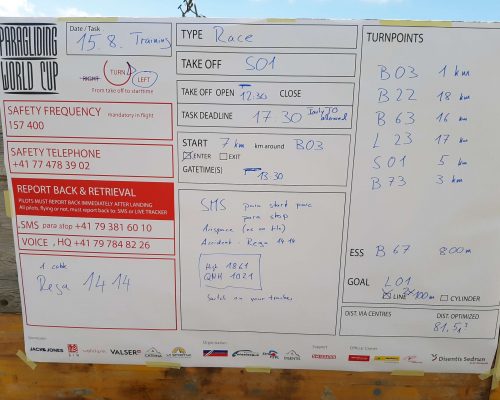 PARAGLIDING
WORLD CUP
Date / Task
15.8. Training
RIGHT
TURN
LEFT
From take off to starttime
SAFETY FREQUENCY mandatory in flight
157 400
SAFETY TELEPHONE
+41 77 478 39 02
REPORT BACK & RETRIEVAL
PILOTS MUST REPORT BACK IMMEDIATELY AFTER LANDING
All pilots, flying or not, must report back to SMS or LIVE TRACKER
SMS para stop +41 79 381 60 10
VOICE, HQ +41 79 784 82 26
Rega 1414
TYPE Race
TAKE OFF S01
TAKE OFF OPEN 12:30 CLOSE
TASK DEADLINE 17:30
START 7 km km around B03
☑ ENTER ☐ EXIT
GATETIME(S)
13:30
SMS para start para
para stop
Airspace
Accident: Rega 1414
QNH 1021
Switch on your tracker
TURNPOINTS
B03 1 km
B22 18 km
B63 16 km
L23 17 km
S01 5 km
B73 3 km
ESS B67 800m
GOAL L01
☑ LINE 100m ☐ CYLINDER
DIST. VIA CENTRES
DIST. OPTIMIZED
JACK & JONES
VALSER
CATRINA
Disentis Sedrun